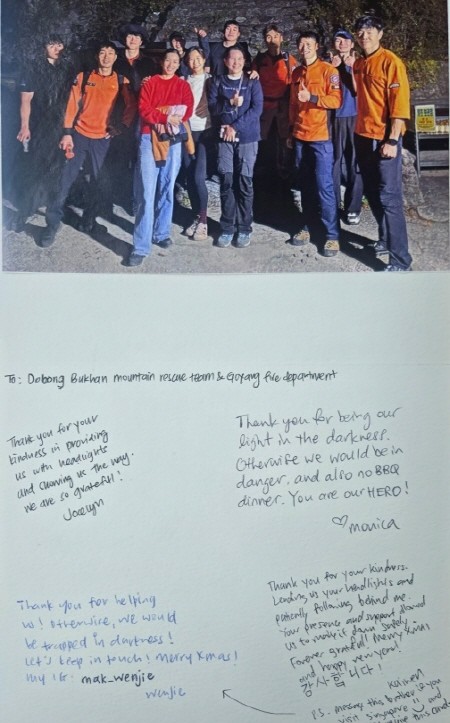 To: Dobong Bukhan mountain rescue team & Goyang fire department
Thank you for your
kindness in providing
us with headlights
and showing us the way.
We are so grateful!
Jocelyn
Thank you for being our
light in the darkness.
Otherwise we would be in
danger, and also no BBQ
dinner. You are our HERO!
♡monica
Thank you for helping
us! Otherwise, we would
be trapped in darkness!
Let's keep in touch! Merry Xmas!
My IG: mak_wenjie
wenjie
Thank you for your kindness.
Lending us your headlights and
patiently following behind me.
Your presence and support allowed
us to make it down safely.
Forever grateful! Merry Xmas
and happy new year!
감사합니다!
P.S. message this brother if you
visit Singapore ☺ and
this card